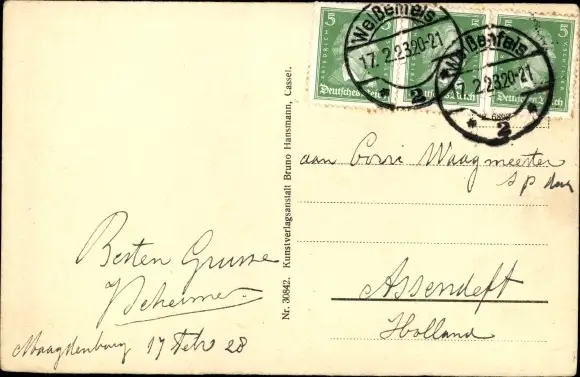 5 5
5 5
5 5
FRIEDRICH
v. SCHILLER
Deutsches Reich
Deutsches Reich
Deutsches Reich
Weißenfels
17. 2. 28 20-21
* 2
Weißenfels
2. 28 20-21
* 2
aan Corri Waagmeester
Assendelft
Holland
Nr. 30842. Kunstverlagsanstalt Bruno Hansmann, Cassel.
Besten Grusse
Maagdenburg 17 Febr 28